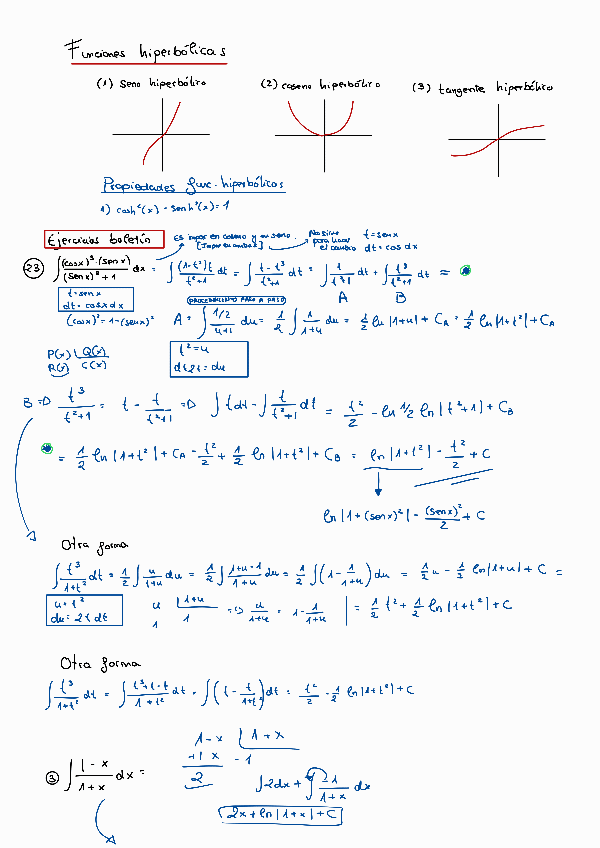 Funciones hiperbólicas
(1) Seno hiperbólico (2) coseno hiperbólico (3) tangente hiperbólica
Propiedades func. hiperbólicas
1) cosh²(x) - senh²(x) = 1
Ejercicios boletín
Es impar en coseno y en seno.
[Impar en ambas]
No sirve para hacer el cambio
t = sen x
dt = cos dx
23) ∫ (cos x)³·(sen x) / (sen x)² + 1 dx = ∫ (1-t²)t / t²+1 dt = ∫ t-t³ / t²+1 dt = ∫ t / t²+1 dt + ∫ t³ / t²+1 dt =
A B
t = sen x
dt = cos x dx
(cos x)² = 1 - (sen x)²
PROCEDIMIENTO PASO A PASO
A = ∫ 1/2 / u+1 du = 1/2 ∫ 1 / 1+u du = 1/2 ln |1+u| + C_A = 1/2 ln |1+t²| + C_A
P(x) | Q(x)
R(x) C(x)
t² = u
dt 2t = du
B => t³ / t²+1 = t - t / t²+1 => ∫ t dt - ∫ t / t²+1 dt = t²/2 - ln 1/2 ln |t²+1| + C_B
= 1/2 ln |1+t²| + C_A - t²/2 + 1/2 ln |1+t²| + C_B = ln |1+t²| - t²/2 + C
ln |1 + (sen x)²| - (sen x)²/2 + C
Otra forma
∫ t³ / 1+t² dt = 1/2 ∫ u / 1+u du = 1/2 ∫ 1+u-1 / 1+u du = 1/2 ∫ (1 - 1 / 1+u) du = 1/2 u - 1/2 ln |1+u| + C =
u = t²
du = 2t dt
u | 1+u
1 1
=> u / 1+u = 1 - 1 / 1+u | = 1/2 t² + 1/2 ln |1+t²| + C
Otra forma
∫ t³ / 1+t² dt = ∫ t³+t-t / 1+t² dt = ∫ (t - t / 1+t²) dt = t²/2 - 1/2 ln |1+t²| + C
3) ∫ 1-x / 1+x dx =
1-x | 1+x
+1 x -1
2
∫ 2dx + ∫ 21 / 1+x dx
2x + ln |1+x| + C